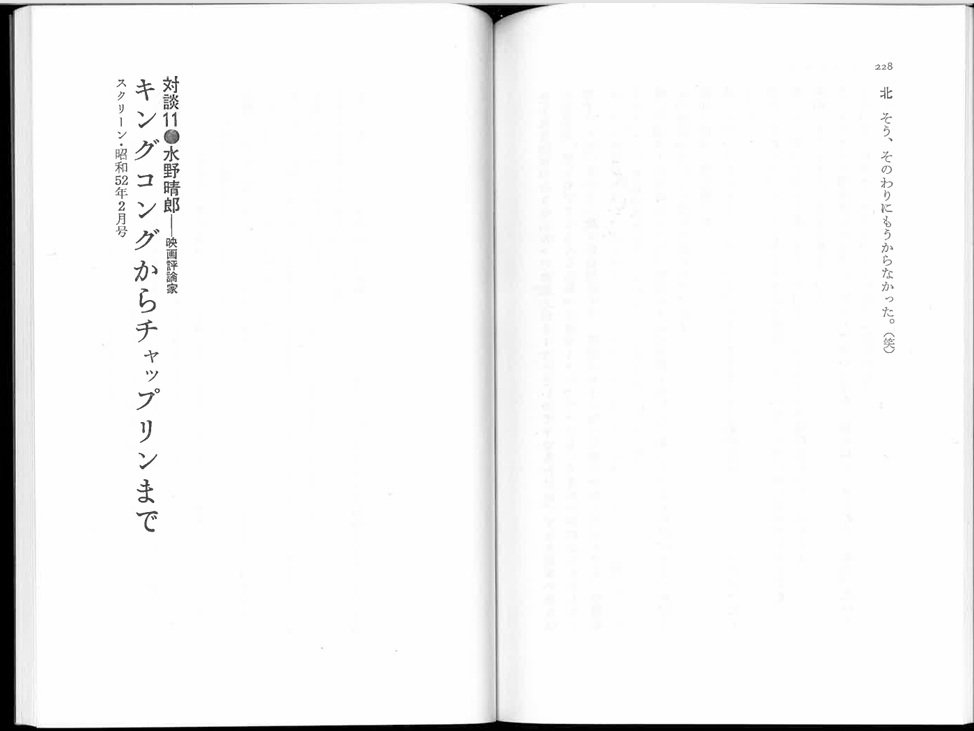 228
北　そう、そのわりにもうからなかった。（笑）
対談11●水野晴郎――映画評論家
キングコングからチャップリンまで
スクリーン・昭和52年2月号